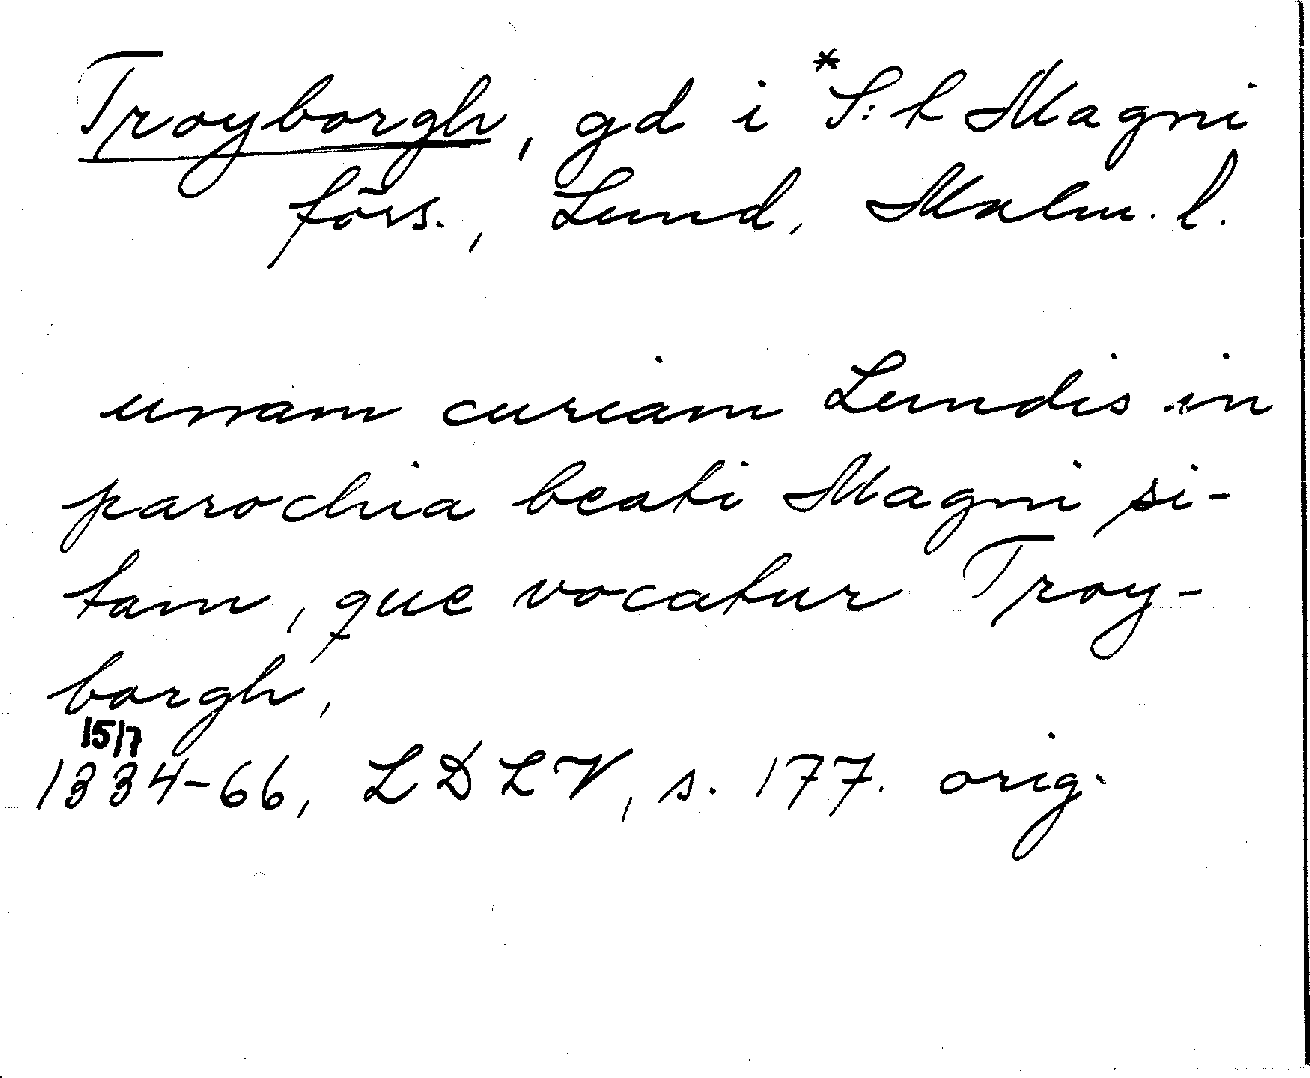 Troyborgh, gd i *S:t Magni
förs., Lund, Malm. l.
unam curiam Lundis in
parochia beati Magni si-
tam, que vocatur Troy-
borgh,
15/7
1334-66, LDLV, s. 177. orig.